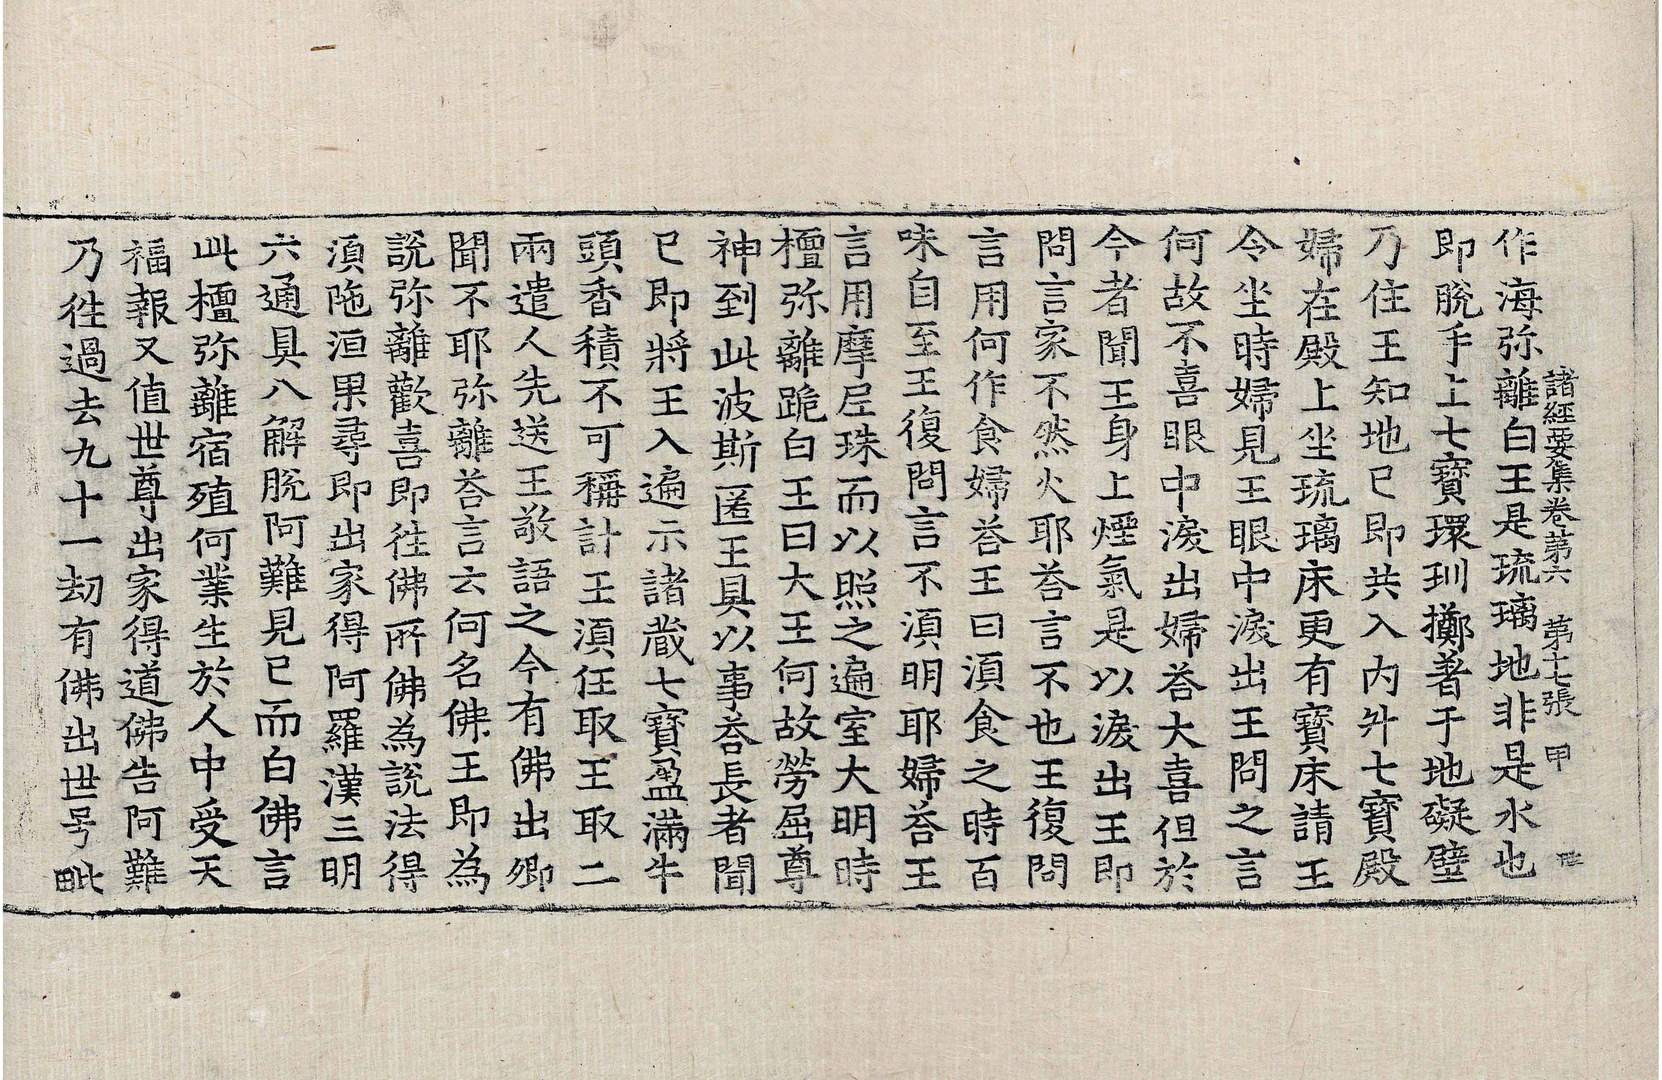 諸經要集卷第六 第十七張 甲
作海弥離白王是琉璃地非是水也
即脫手上七寶環玔擲著于地礙壁
乃住王知地已即共入內升七寶殿
婦在殿上坐琉璃床更有寶床請王
令坐時婦見王眼中淚出王問之言
何故不喜眼中淚出婦荅大喜但於
今者聞王身上煙氣是以淚出王即
問言家不然火耶荅言不也王復問
言用何作食婦荅王曰湏食之時百
味自至王復問言不湏明耶婦荅王
言用摩尼珠而以照之遍室大明時
檀弥離跪白王曰大王何故勞屈尊
神到此波斯匿王具以事荅長者聞
已即將王入遍示諸藏七寶盈滿牛
頭香積不可稱計王湏任取王取二
兩遣人先送王敬語之今有佛出卿
聞不耶弥離荅言云何名佛王即為
說弥離歡喜即往佛所佛為說法得
湏陁洹果尋即出家得阿羅漢三明
六通具八解脫阿難見已而白佛言
此檀弥離宿殖何業生於人中受天
福報又值世尊出家得道佛告阿難
乃往過去九十一劫有佛出世号毗